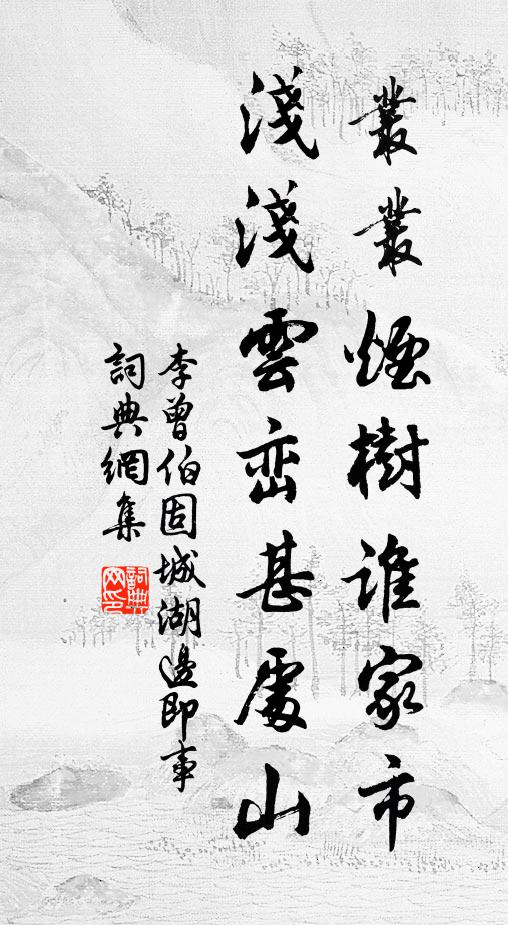 叢叢煙樹誰家市
淺淺雲峦甚處山
李曾伯固城湖邊即事
詞典網集
詞典网印